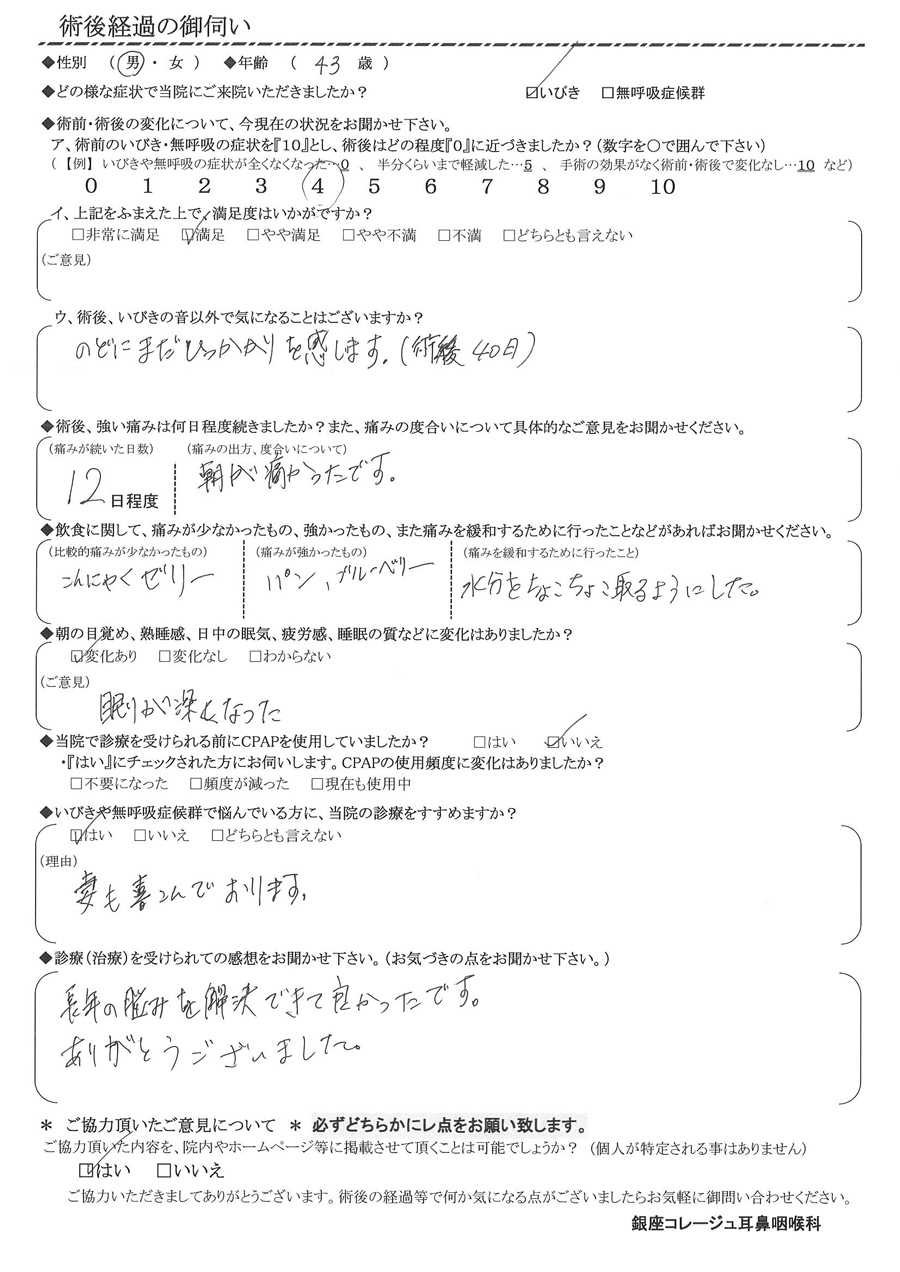 術後経過の御伺い
◆性別 ( 男 ・ 女 ) ◆年齢 ( 43 歳 )
◆どの様な症状で当院にご来院いただきましたか? ☑いびき □無呼吸症候群
◆術前・術後の変化について、今現在の状況をお聞かせ下さい。
ア、術前のいびき・無呼吸の症状を『10』とし、術後はどの程度『0』に近づきましたか?(数字を〇で囲んで下さい)
(【例】 いびきや無呼吸の症状が全くなくなった…0 、 半分くらいまで軽減した…5 、 手術の効果がなく術前・術後で変化なし…10 など)
0 1 2 3 4 5 6 7 8 9 10
イ、上記をふまえた上で、満足度はいかがですか?
□非常に満足 ☑満足 □やや満足 □やや不満 □不満 □どちらとも言えない
(ご意見)
ウ、術後、いびきの音以外で気になることはございますか?
のどにまだひっかかりを感じます。(術後40日)
◆術後、強い痛みは何日程度続きましたか?また、痛みの度合いについて具体的なご意見をお聞かせください。
(痛みが続いた日数) (痛みの出方、度合いについて)
12日程度 朝が痛かったです。
◆飲食に関して、痛みが少なかったもの、強かったもの、また痛みを緩和するために行ったことなどがあればお聞かせください。
(比較的痛みが少なかったもの) (痛みが強かったもの) (痛みを緩和するために行ったこと)
こんにゃくゼリー パン、ブルーベリー 水分をちょこちょこ取るようにした。
◆朝の目覚め、熟睡感、日中の眠気、疲労感、睡眠の質などに変化はありましたか?
☑変化あり □変化なし □わからない
(ご意見)
眠りが深くなった
◆当院で診療を受けられる前にCPAPを使用していましたか? □はい ☑いいえ
・『はい』にチェックされた方にお伺いします。CPAPの使用頻度に変化はありましたか?
□不要になった □頻度が減った □現在も使用中
◆いびきや無呼吸症候群で悩んでいる方に、当院の診療をすすめますか?
☑はい □いいえ □どちらとも言えない
(理由)
妻も喜こんでおります。
◆診療(治療)を受けられての感想をお聞かせ下さい。(お気づきの点をお聞かせ下さい。)
長年の悩みを解決できて良かったです。
ありがとうございました。
＊ ご協力頂いたご意見について ＊ 必ずどちらかにレ点をお願い致します。
ご協力頂いた内容を、院内やホームページ等に掲載させて頂くことは可能でしょうか? (個人が特定される事はありません)
☑はい □いいえ
ご協力いただきましてありがとうございます。術後の経過等で何か気になる点がございましたらお気軽に御問い合わせください。
銀座コレージュ耳鼻咽喉科